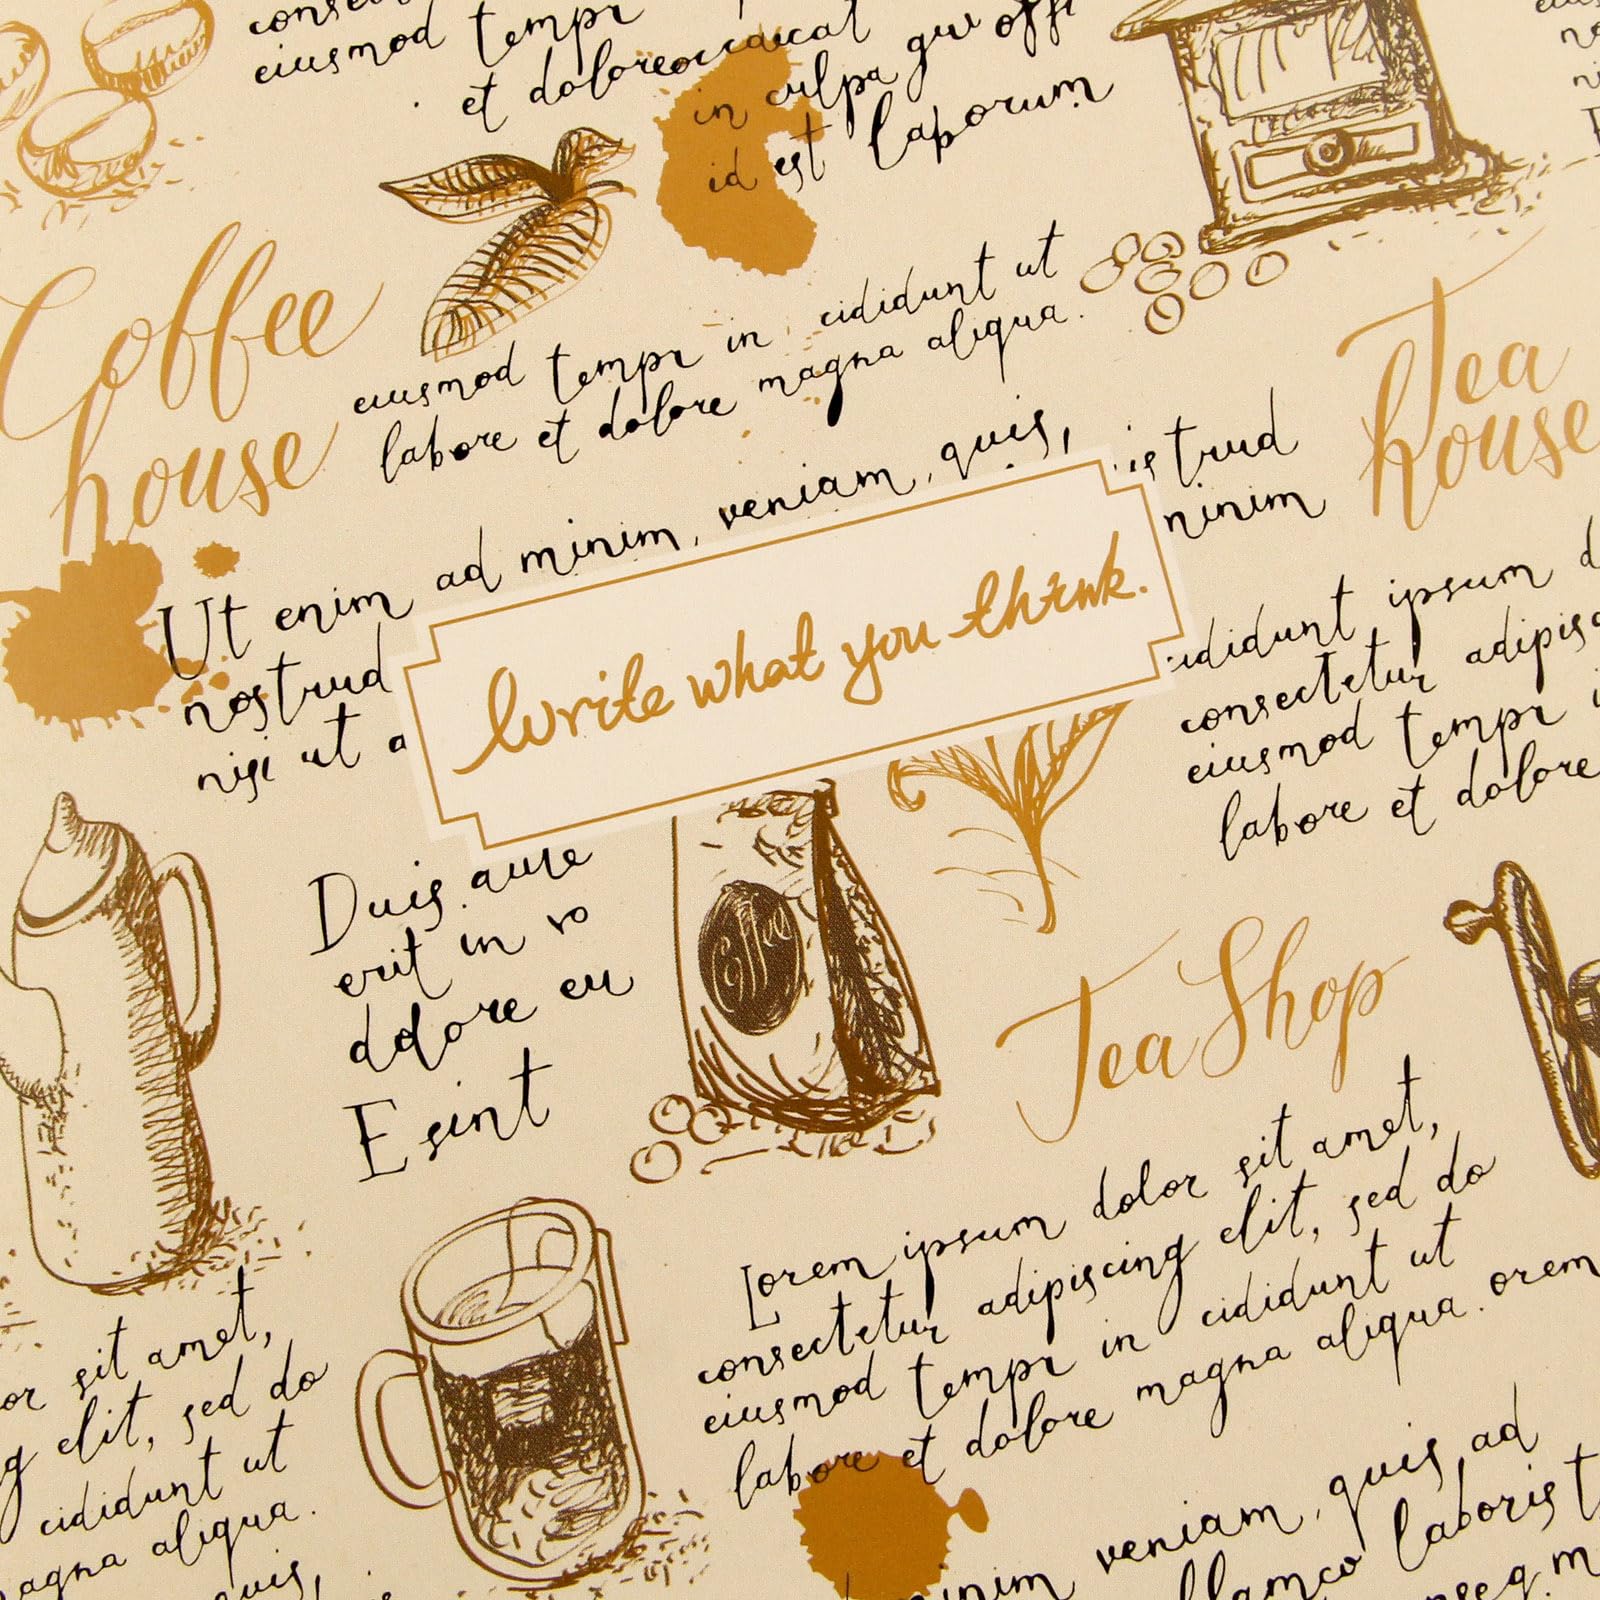 eiusmod tempr
et doloreoccaecat
in culpa qui offi
id est laborum
Coffee
house
eiusmod tempr in cididunt ut
labore et dolore magna aliqua.
Tea
house
Ut enim ad minim, veniam, quis,
nostrud
nisi ut a
strud
minim
Write what you think.
cididunt ipsum d
consectetur adipisc
eiusmod tempr i
labore et dolore
Duis aure
erit in vo
dolore eu
E sint
Coffee
Tea Shop
Lorem ipsum dolor sit amet,
consectetur adipiscing elit, sed do
eiusmod tempr in cididunt ut
labore et dolore magna aliqua. orem
or sit amet,
g elit, sed do
cididunt ut
magna aliqua.
quis,
minim veniam, quis, ad
llamco laboris t
nseq. m